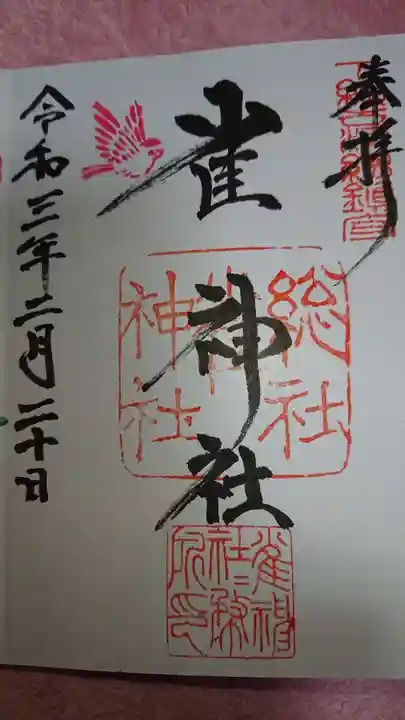 奉拝
雀神社
総社
雀
神社
雀神
社々務
所印
令和三年二月二十日